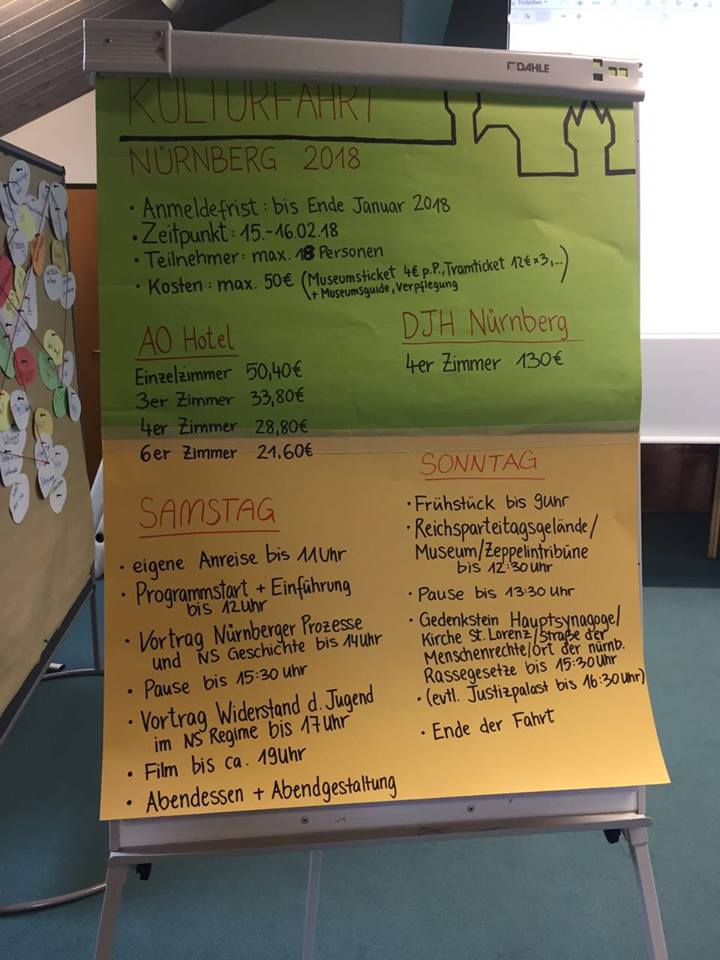 DAHLE
KULTURFAHRT
NÜRNBERG 2018
· Anmeldefrist : bis Ende Januar 2018
· Zeitpunkt : 15.-16.02.18
· Teilnehmer : max. 18 Personen
· Kosten : max. 50€ (Museumsticket 4€ p.P., Tramticket 12€×3,...)
+ Museumsguide, Verpflegung
AO Hotel
Einzelzimmer 50,40€
3er Zimmer 33,80€
4er Zimmer 28,80€
6er Zimmer 21,60€
DJH Nürnberg
4er Zimmer 130€
SAMSTAG
· eigene Anreise bis 11 Uhr
· Programmstart + Einführung
bis 12 Uhr
· Vortrag Nürnberger Prozesse
und NS Geschichte bis 14 Uhr
· Pause bis 15:30 Uhr
· Vortrag Widerstand d. Jugend
im NS Regime bis 17 Uhr
· Film bis ca. 19 Uhr
· Abendessen + Abendgestaltung
SONNTAG
· Frühstück bis 9 Uhr
· Reichsparteitagsgelände/
Museum/Zeppelintribüne
bis 12:30 Uhr
· Pause bis 13:30 Uhr
· Gedenkstein Hauptsynagoge/
Kirche St. Lorenz/Straße der
Menschenrechte/Ort der nürnb.
Rassegesetze bis 15:30 Uhr
· (evtl. Justizpalast bis 16:30 Uhr)
· Ende der Fahrt